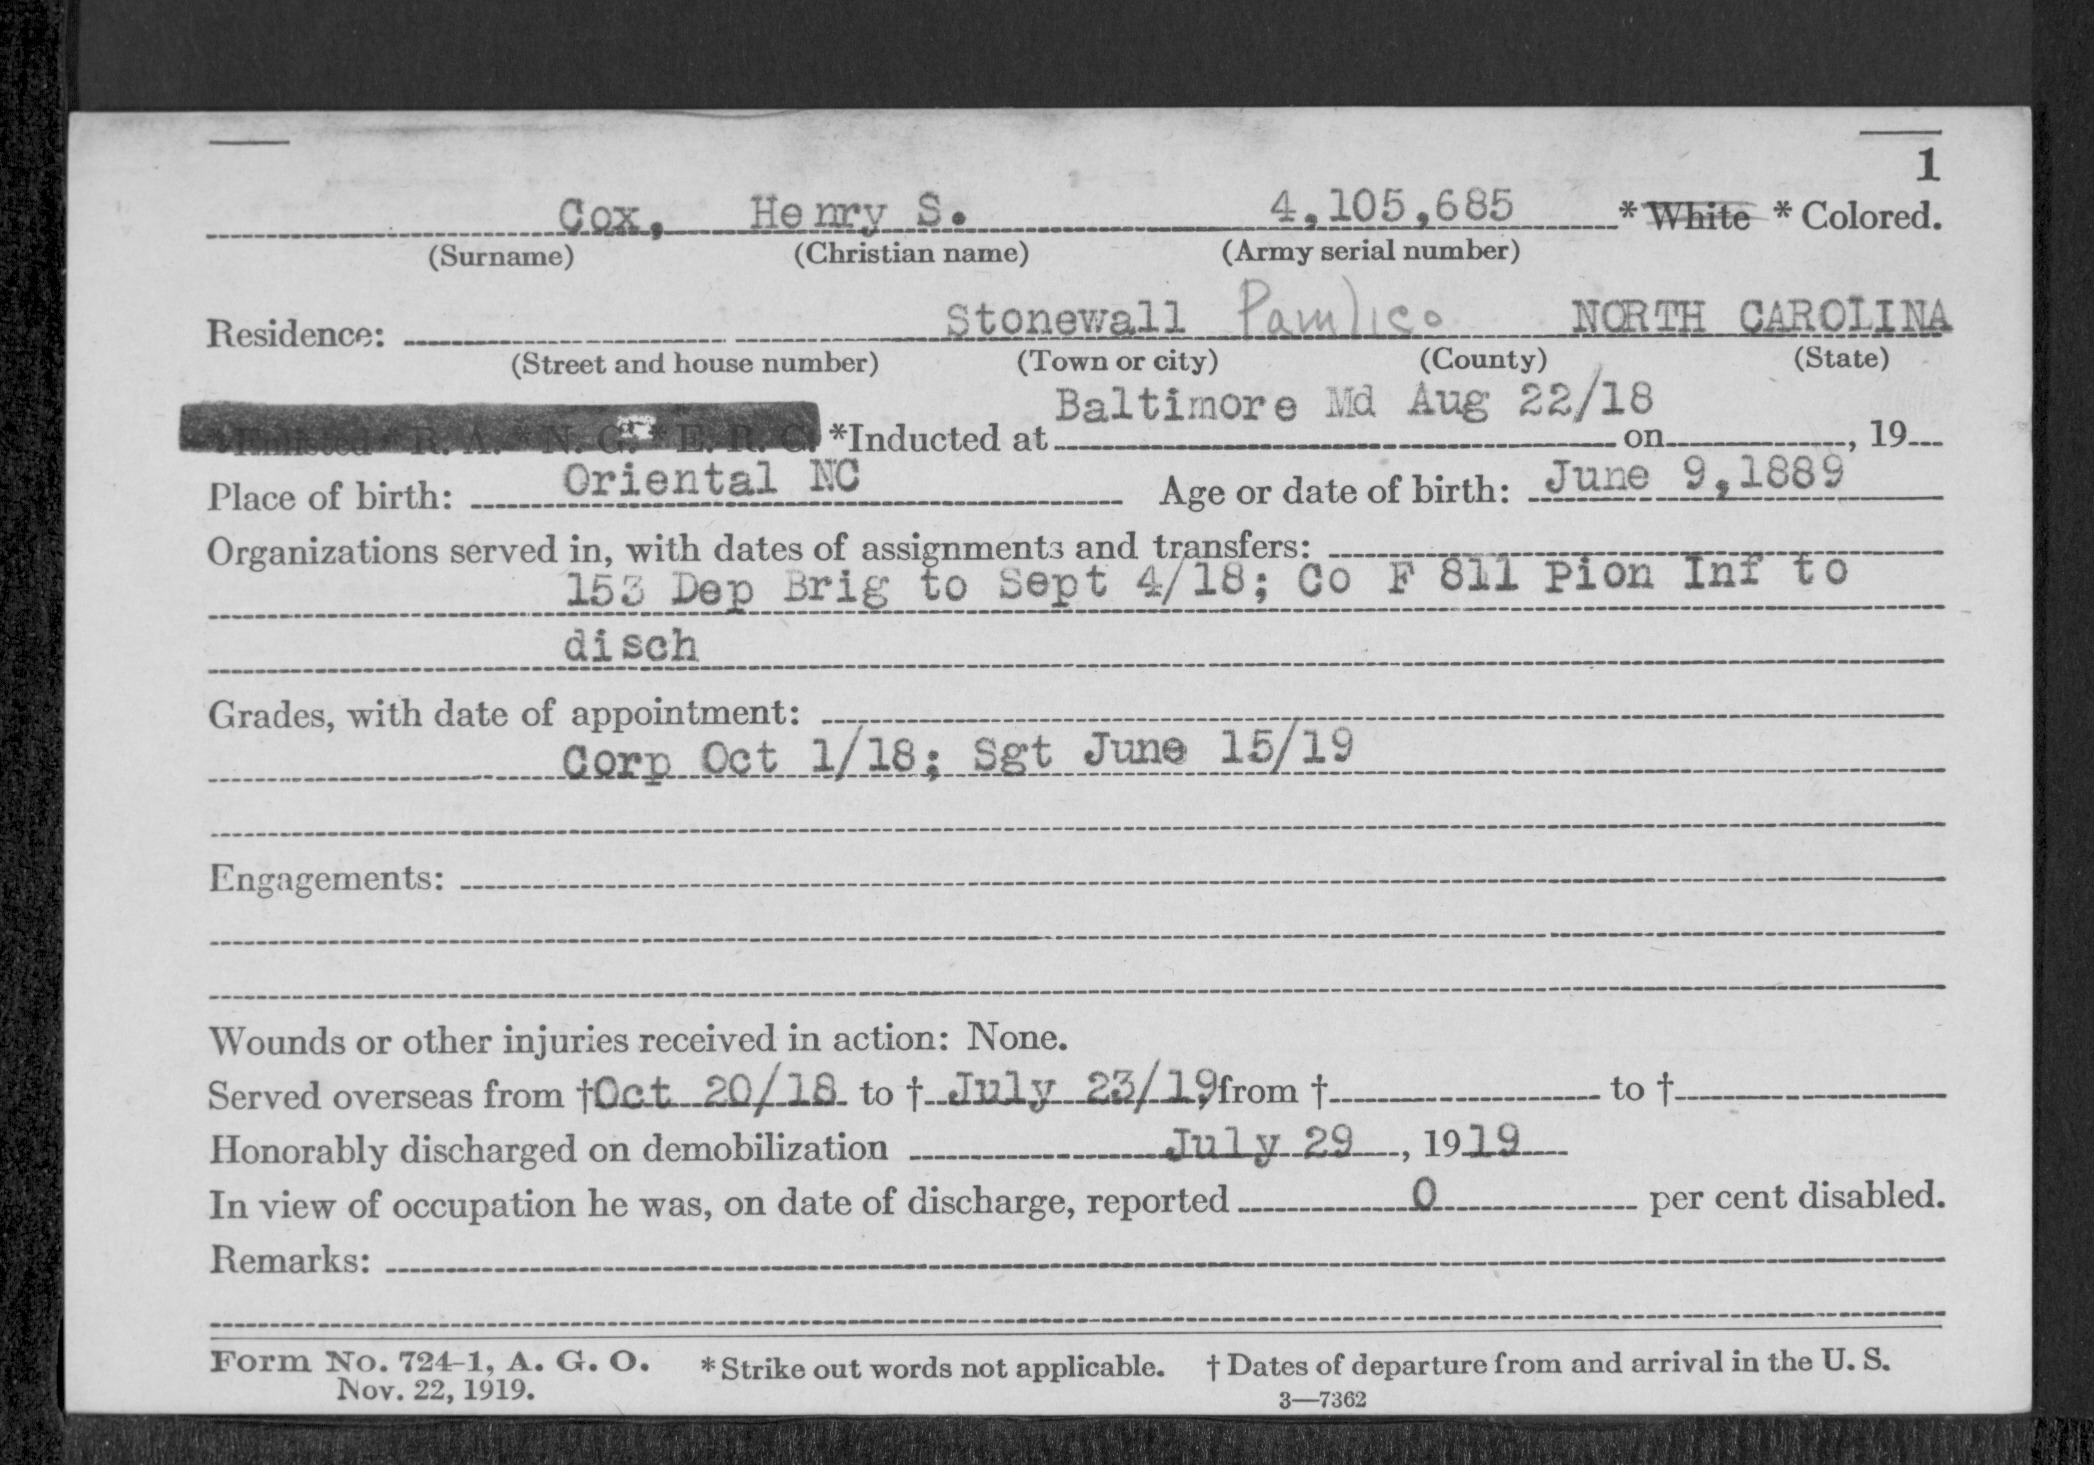 1
Cox, Henry S. 4,105,685 * White * Colored.
(Surname) (Christian name) (Army serial number)
Residence: Stonewall Pamlico NORTH CAROLINA
(Street and house number) (Town or city) (County) (State)
Baltimore Md Aug 22/18
*Enlisted * R. A. * N. G. * E. R. C. *Inducted at on , 19
Place of birth: Oriental NC Age or date of birth: June 9,1889
Organizations served in, with dates of assignments and transfers:
153 Dep Brig to Sept 4/18; Co F 811 Pion Inf to
disch
Grades, with date of appointment:
Corp Oct 1/18; Sgt June 15/19
Engagements:
Wounds or other injuries received in action: None.
Served overseas from †Oct 20/18 to † July 23/19, from † to †
Honorably discharged on demobilization July 29, 1919
In view of occupation he was, on date of discharge, reported 0 per cent disabled.
Remarks:
Form No. 724-1, A. G. O. * Strike out words not applicable. † Dates of departure from and arrival in the U. S.
Nov. 22, 1919. 3—7362